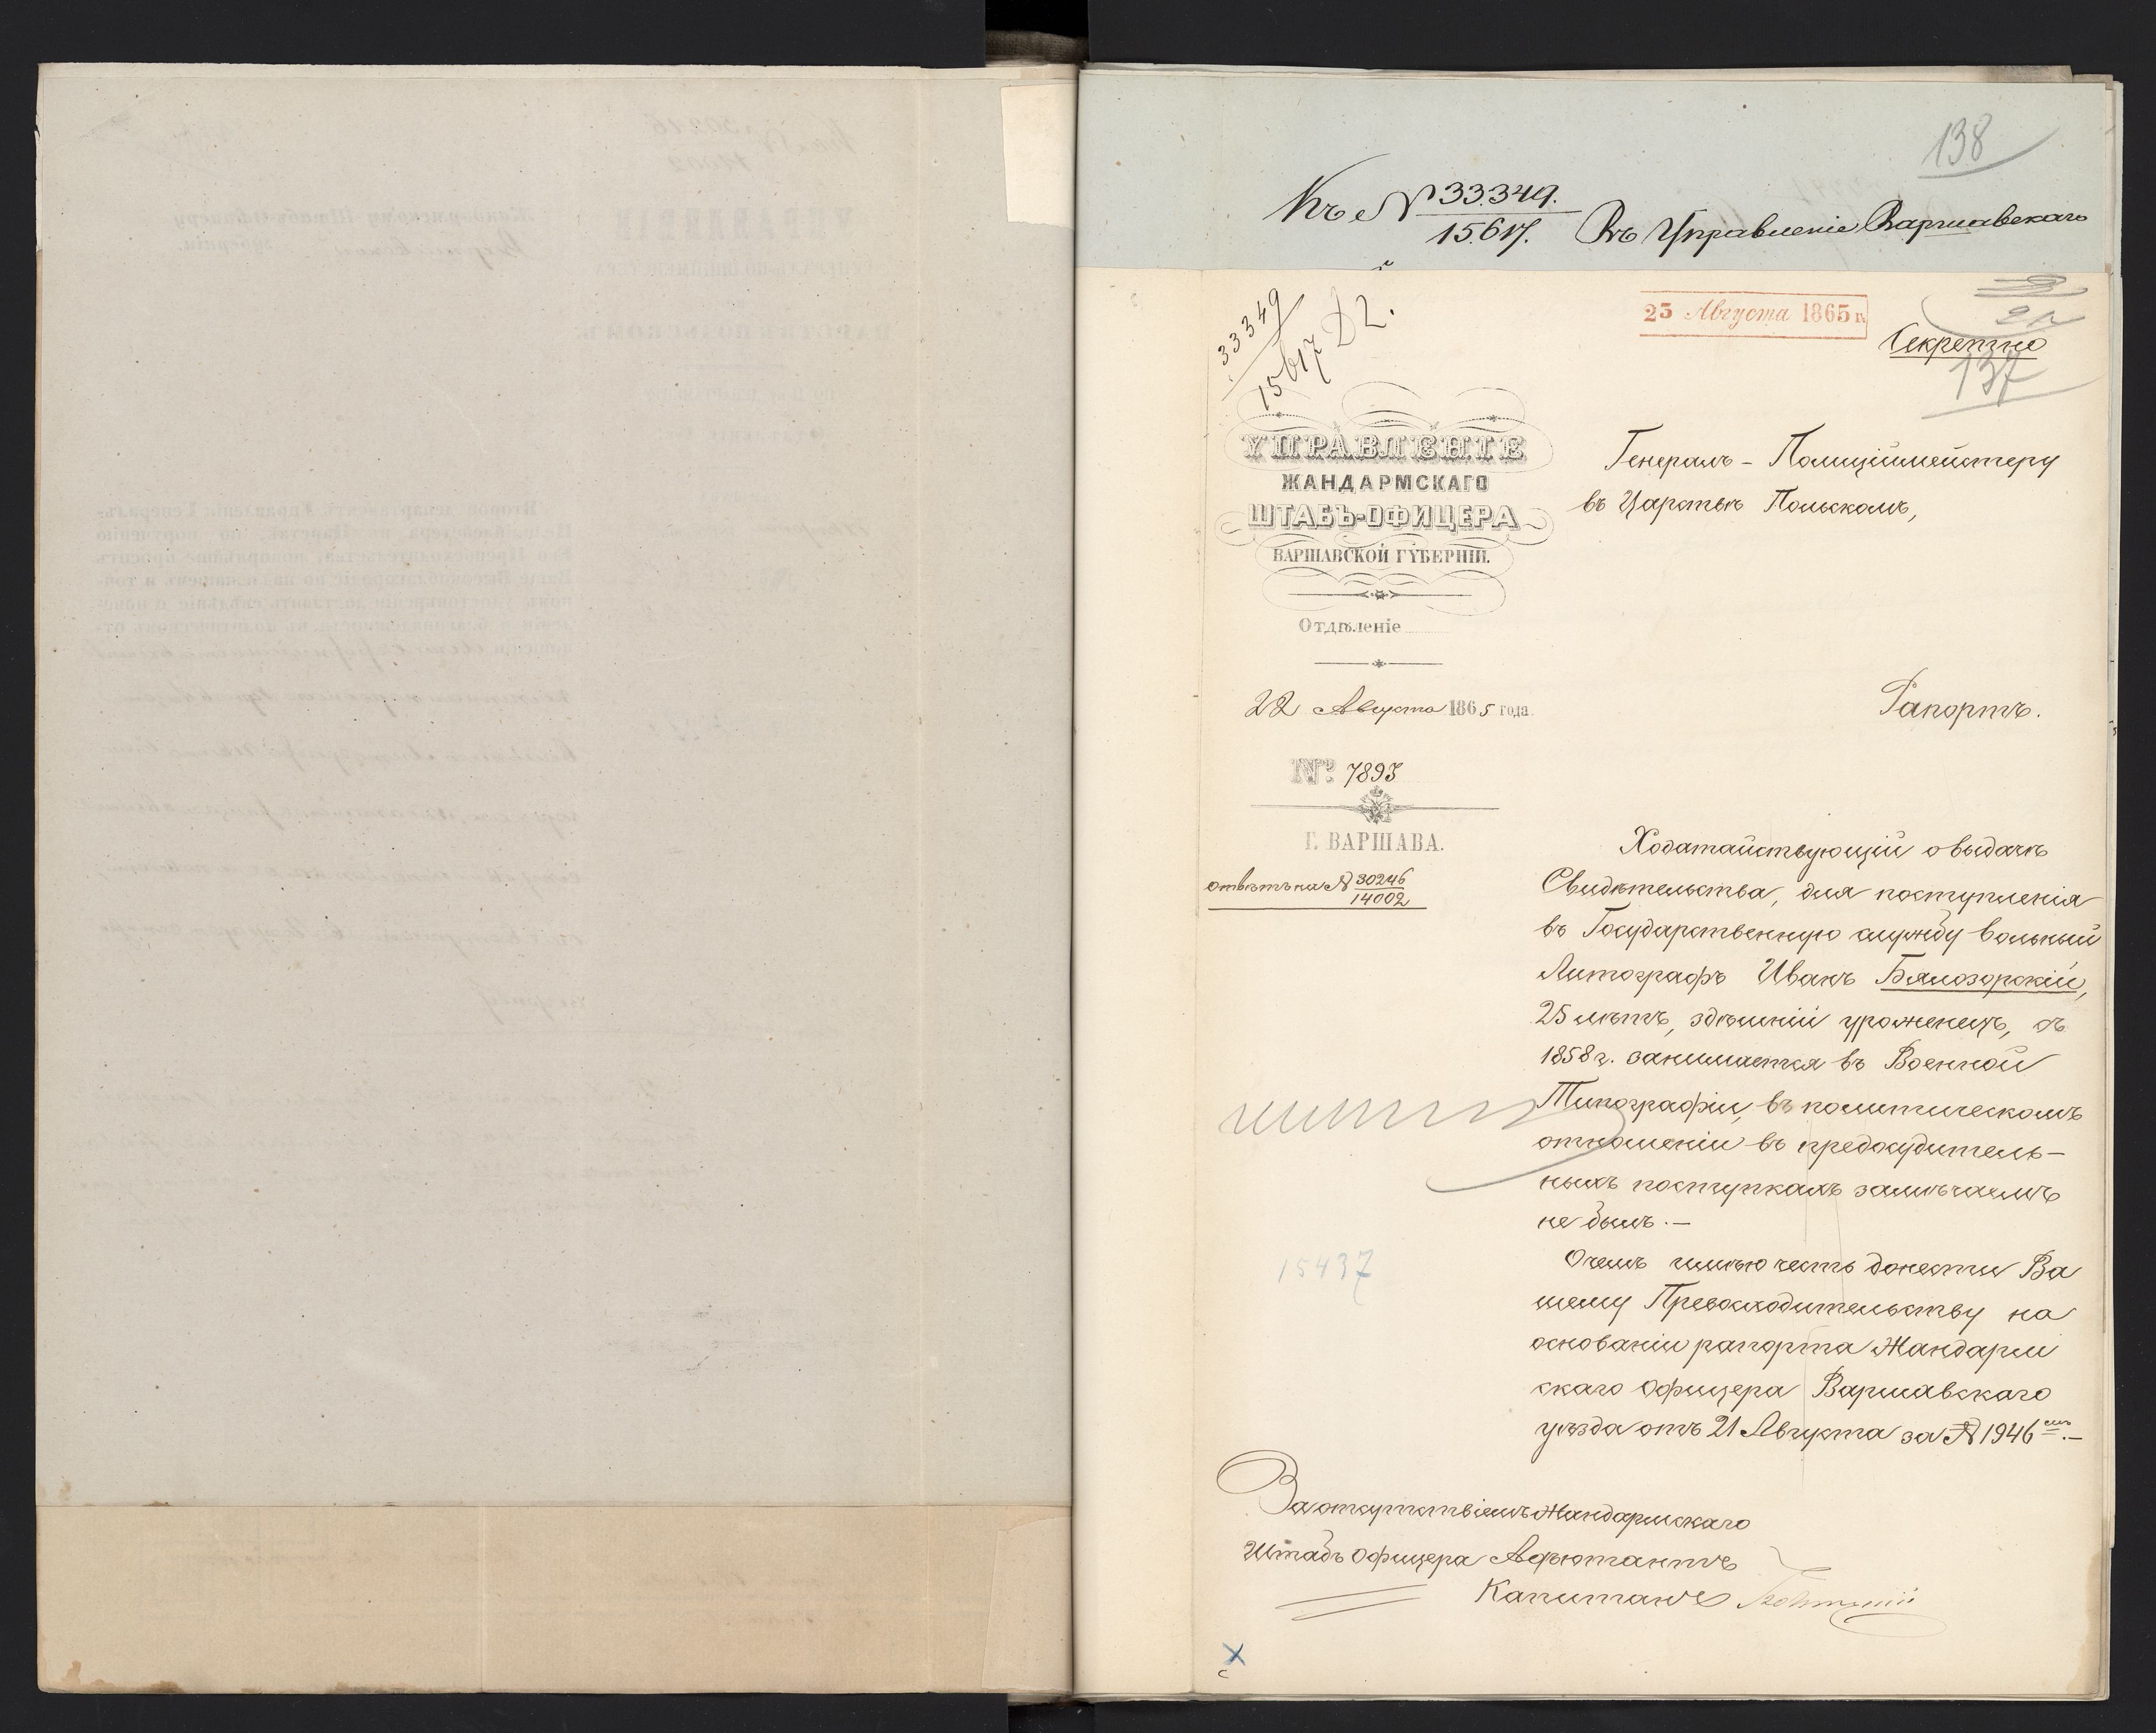 138
Къ № 33.349.
15.617. Въ Управленіе Варшавскаго
33349
15617 Д2.
23 Августа 1865 г.
Секретно
137
УПРАВЛЕНІЕ
ЖАНДАРМСКАГО
ШТАБЪ-ОФИЦЕРА
ВАРШАВСКОЙ ГУБЕРНІИ.
Отдѣленіе
22 Августа 1865 года.
№ 7893
Г. ВАРШАВА.
отвѣтъ на № 30246
14002
Генералъ-Полиціймейстеру
въ Царствѣ Польскомъ,
Рапортъ.
Ходатайствующій о выдачѣ
Свидѣтельства, для поступленія
въ Государственную службу вольный
Литографъ Иванъ Бялозорскій,
25 лѣтъ, здѣшній уроженецъ, съ
1858 г. занимается въ Военной
Типографіи, въ политическомъ
отношеніи въ предосудитель-
ныхъ поступкахъ замѣчаемъ
не былъ.—
О чемъ имѣю честь донести Ва
шему Превосходительству на
основаніи рапорта Жандарм
скаго Офицера Варшавскаго
уѣзда отъ 21 Августа за № 1946 емъ.—
15437
За отсутствіемъ Жандармскаго
Штабъ Офицера Адъютантъ
Капитанъ